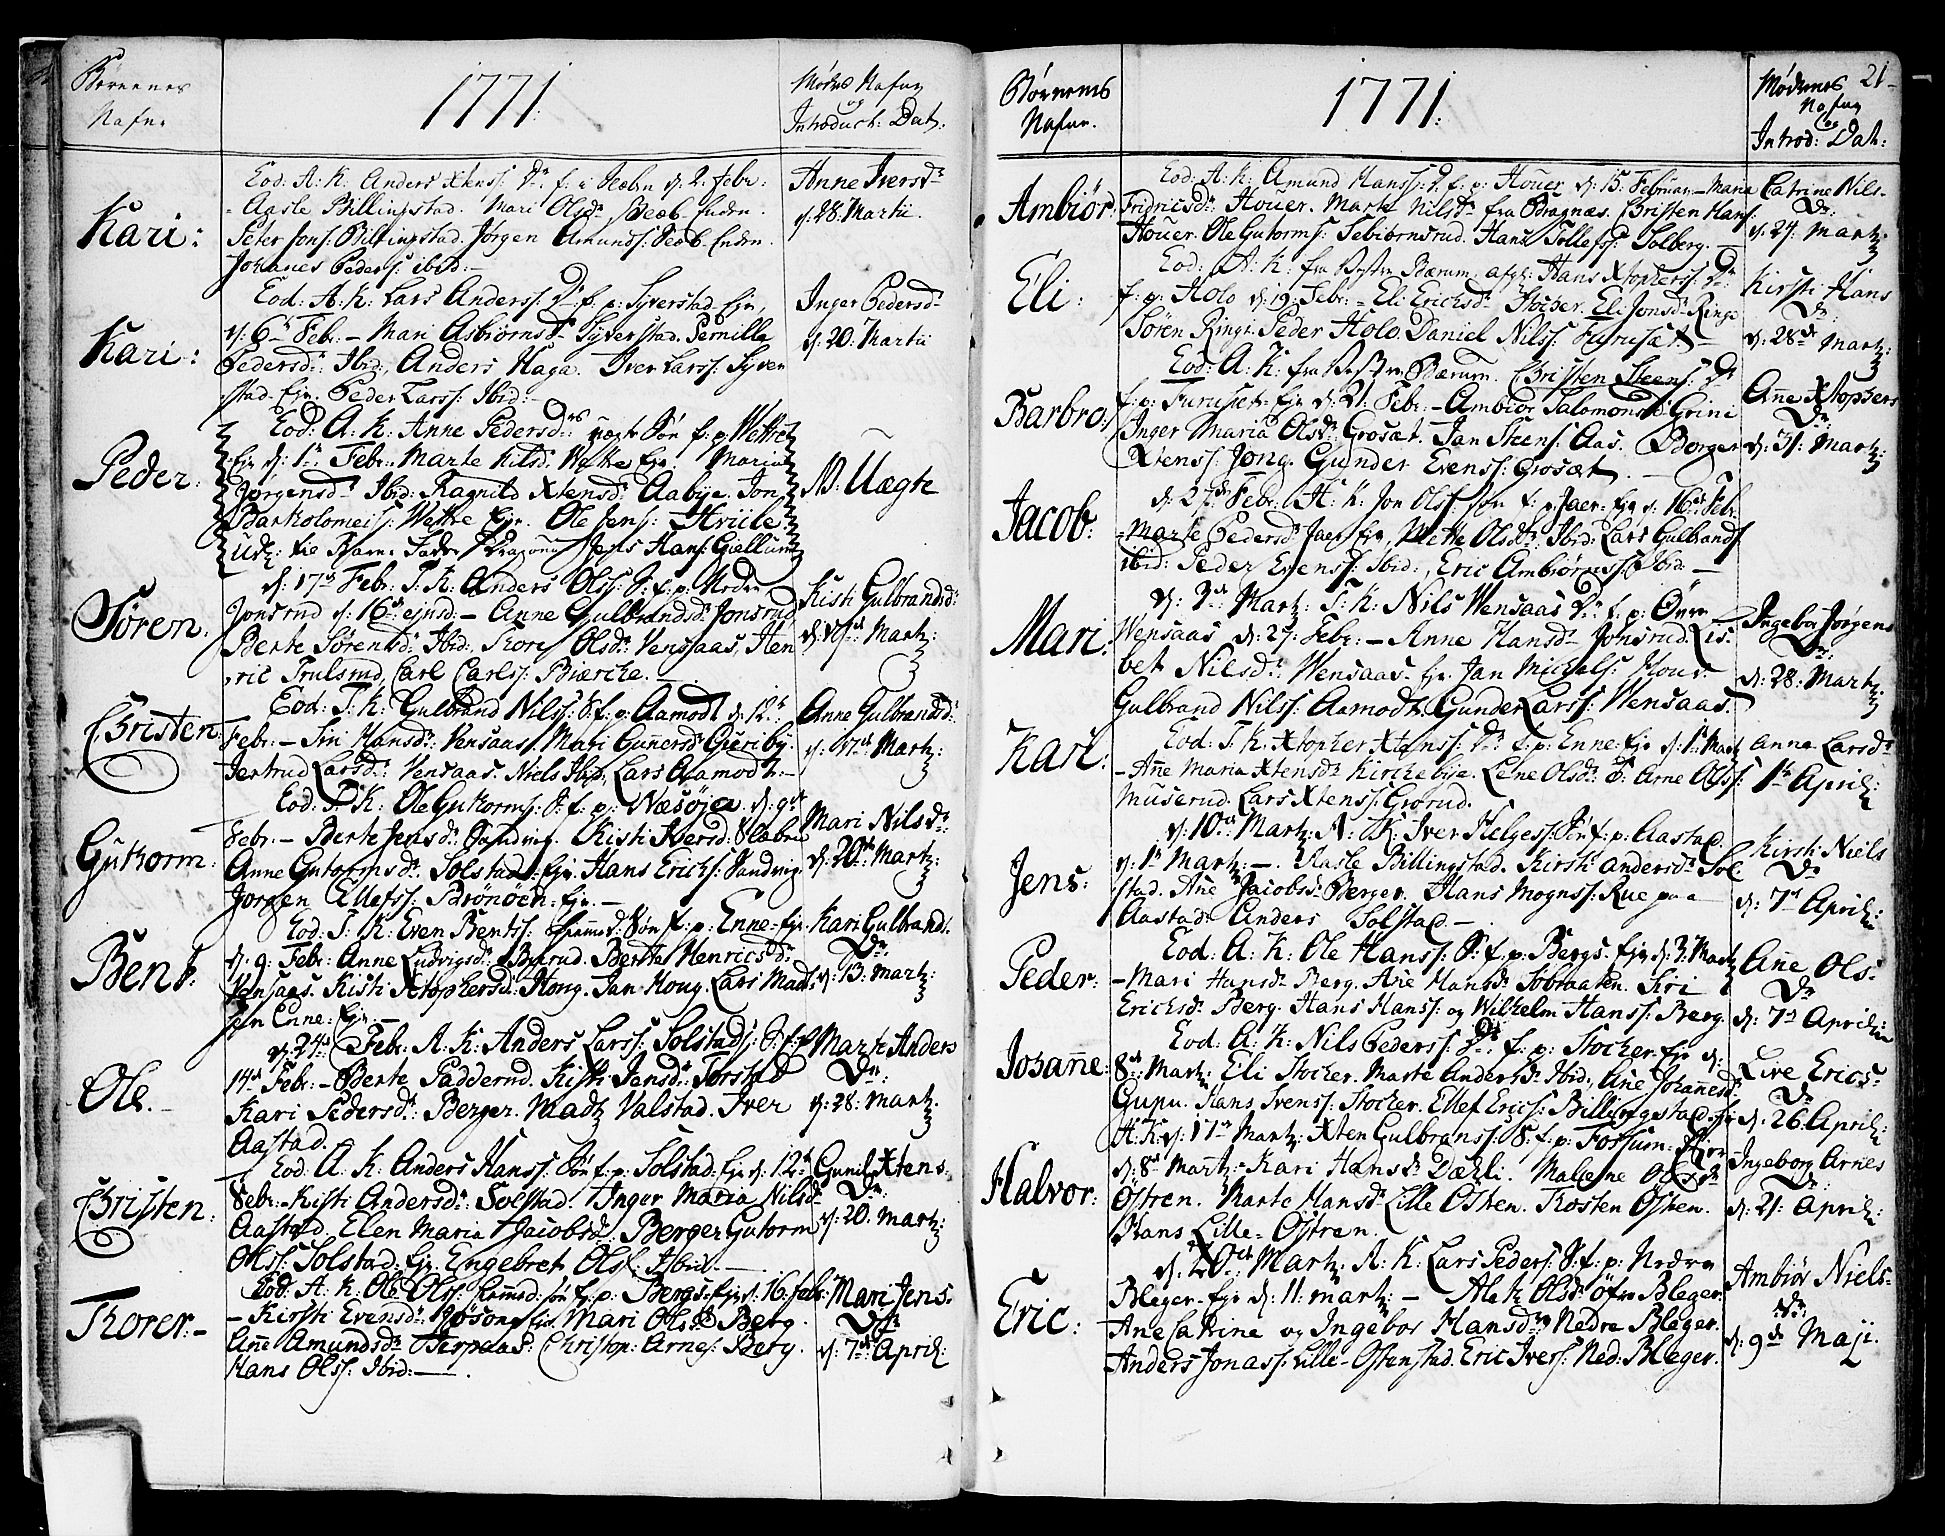 Børnenes
Nafn.
1771.
Mødrs Nafn
og
Introduct: Dat:
Kari:
Eod: A: K: Anders Xtens: D: f: i Neb: d. 2. Febr:
Aasle Billingstad. Mari Olsd: Enden.
Peter Jons: Billingstad. Jørgen Amunds: Enden.
Johanes Peders: ibid:
Anne Iversd:
d. 28. Martii.
Kari:
Eod: A: K: Lars Anderss: D: f: p: Syverstad Eje,
d: 6 Febr. - Mari Asbiørnsd: Syverstad. Pernille
Pedersd: Ibid, Anders Haga. Iver Larss: Syver
stad Eje. Peder Larss: Ibid:
Inger Pedersd:
d. 20. Martii
Peder:
Eod: A: K: Anne Pedersd: uægte Søn f: p: Wettre
Eje d: 1. Febr: Marte Wettre Eje. Maria
Jørgensd: Ibid: Ragnild Xtensd: Aabye. Jon
Bartholomeis: Wettre Eje. Ole Jens:
Udl: tie Barne Fader Dragoun Jens Hans: Giellum
N. Uægte
Søren.
d: 17 Febr: T: K: Anders Olss: S: f: p: Nedre
Jonsrud d: 16 ejusd: - Anne Gulbrandsd: Jonsrud
Berte Sørensd: Ibid: Tore Olsd: Vensaas, Hen
ric Trulsrud, Carl Carls: Biærche.
Kisti Gulbrandsd:
d: Martz:
Christen
Eod: T: K: Gulbrand Nilss: S: f: p: Aamodt d: 12
Febr: - Siri Hansd: Vensaas, Mari Guñersd: Gieriby.
Jertrud Larsd: Vensaas. Niels Ibid, Lars Aamodt.
Anne Gulbrandsd:
d. 17 Martz:
Guttorm:
Eod: T: K: Ole Guttorms: S: f: p: Næsøjen d: 9
Febr: - Berte Jensd: Sandvig. Kisti Iversd:
Anne Guttormsd: Solstad: Eje Hans Erics: Sandvig.
Jorgen Ellefss: Brønøen: Eje.
Mari Nilsd:
d: 20 Martz:
Bent.
Eod: T: K: Even Bentss: Søn f: p: Enne-Eje
d. 9. Febr: Anne Ludvigsd: Berthe Henricsd:
Vensaas. Kisti Xtophersd: Houg. Jan Houg. Lars Mads:
Enne: Eje.
Kari Gulbrand.
D:
d: 13. Martz:
Ole.
d: 24 Febr: A: K: Anders Larss: Solstads S: f: p
14 Febr: - Berte Padderud. Kisti Jensd: Torstad
Kari Pedersd: Berger. Madtz Valstad. Iver
Aastad.
Marte Anders
D:
d. 28. Martz.
Christen.
Eod: A: K: Anders Hans: Søn f: p: Solstad. Eje d: 12
Febr: Kisti Andersd: Solstad. Inger Maria Nilsd:
Aastad. Elen Maria Jacobsd: Berger. Gutorm
Olss: Solstad: Eje Engebret Ols: Ibid.
Gunild Xtens
D:
d: 20. Martz:
Torer.
Eod: A: K: Ole Olss: søn f. p: Bergs-Eje d. 16. Feb:
- Kirsti Evensd: Mari Olsd: Berg.
Añe Amundsd: Terpaas. Christop: Arnes: Berg.
Hans Olss: Ibid:
Mari Jens
D:
d: 7 April:
Børnens
Nafne.
1771:
Mødrenes
Nafn
og
Introd: Dat:
21
Ambiør:
Eod: A: K: Amund Hanss: D. f: p: Houer d: 15. Februar. - Maria
Fridricsd: Houer. Marte Nilsd: fra Bragnæs. Christen Hans:
Houer. Ole Gutorms: Tebiørnsrud. Hans Tollefs: Solberg.
Catrine Nils
D:
d: 27. Martz
Eli:
Eod: A: K: fra Vestre Bærum: Hans Xtophers: D:
f: p: Holo d: 19. Febr: - Eli Ericsd: Stocker. Eli Jonsd: Ringe
Søren Ringe. Peder Holo. Daniel Nilss: Furuset.
Kirsti Hans
D:
d: 28 Martz:
Barbro:
Eod: A: K: fra Vestre Bærum. Christen Steens: D:
f: p: Furuset-Eje d: 21. Febr. - Ambiør Salomonsd: Grini
Inger Maria Olsd: Grosæt. Jan Steens: Aas. Borger
Xtens: Jong. Gunder Evens: Grosæt.
Añe Xtophers
D:
d: 31. Martz:
Jacob:
d: 27 Febr: H: K: Jon Olss: Søn f: p: Jaer-Eje d. 16 Febr:
Marte Pedersd: Jaer Eje, Mette Olsd: Ibid: Lars Gulbrands:
ibid: Peder Evens: Ibid:, Eric Ambiørns: Ibid.
Mari:
d: 3 Martz: T: K: Nils Wensaas D: f: p: Øvre
Wensaas d: 27. Febr: - Anne Hansd: Jonsrud. Lis
bet Nilsd: Wensaas. Eje Jan Michels:
Gulbrand Nilss: Aamodt. Gunder Larss: Wensaas.
Ingebor Jørgens
D:
d: 28: Martz:
Kari.
Eod: T: K: Xtopher Xtens: D: f: p: Enne-Eje d: 1 Mart
- Añe Maria Xtensd: Kirchebye. Lene Olsd: Arne Olss:
Muserud. Lars Xtens: Grorud.
Anna Larsd:
1 April:
Jens:
d: 10 Martz: N: K: Iver Helgess: Søn f: p: Aastad
d. 1 Martz: - Aasle Billingstad. Kirsti Andersd: Sol
stad. Añe Jacobsd: Berger. Hans Mogns: Rue paa
Aastad. Anders Solstad.
Kirsti Niels
D:
d: 7 April:
Peder:
Eod: A. K: Ole Hans: S: f. p: Bergs. Eje d: 3. Martz
- Mari Hansd: Berg. Añe Hansd: Sobraaten. Siri
Ericksd: Berg. Hans Hans: og Wilhelm Hans: Berg.
Añe Ols
D:
d. 7 April:
Johañe:
Eod: A: K: Nils Peders: D: f: p: Stocker-Eje d:
8 Martz: Eli Stocker. Marte Andersd: Ibid, Añe Johañesd:
Gupu. Hans Svens: Stocker. Ellef Erics: Billingstad: Eje
Live Erics
D:
d. 26. April:
Halvor:
H: K: d. 17 Martz: Xten Gulbrans: S: f: p: Fossum: Eje
d: 8 Martz: - Kari Hansd: Dæhli. Malene Olsd:
Østren. Marte Hansd: Lille Østren. Tosten Østren.
Hans Lille-Østren.
Ingeborg Arnes
D:
d: 21: April:
Eric:
d. 20 Martz: A: K: Lars Peders: S: f: p: Nedre
Bleger-Eje d: 11. Martz: - Olsd: Øfre Bleger.
Añe Catrine og Ingebor Hansd: Nedre Bleger.
Anders Jonas: Lille-Ostenstad. Eric Ivers: Ned: Bleger.
Ambiør Niels
D:
d: 9 Maji.